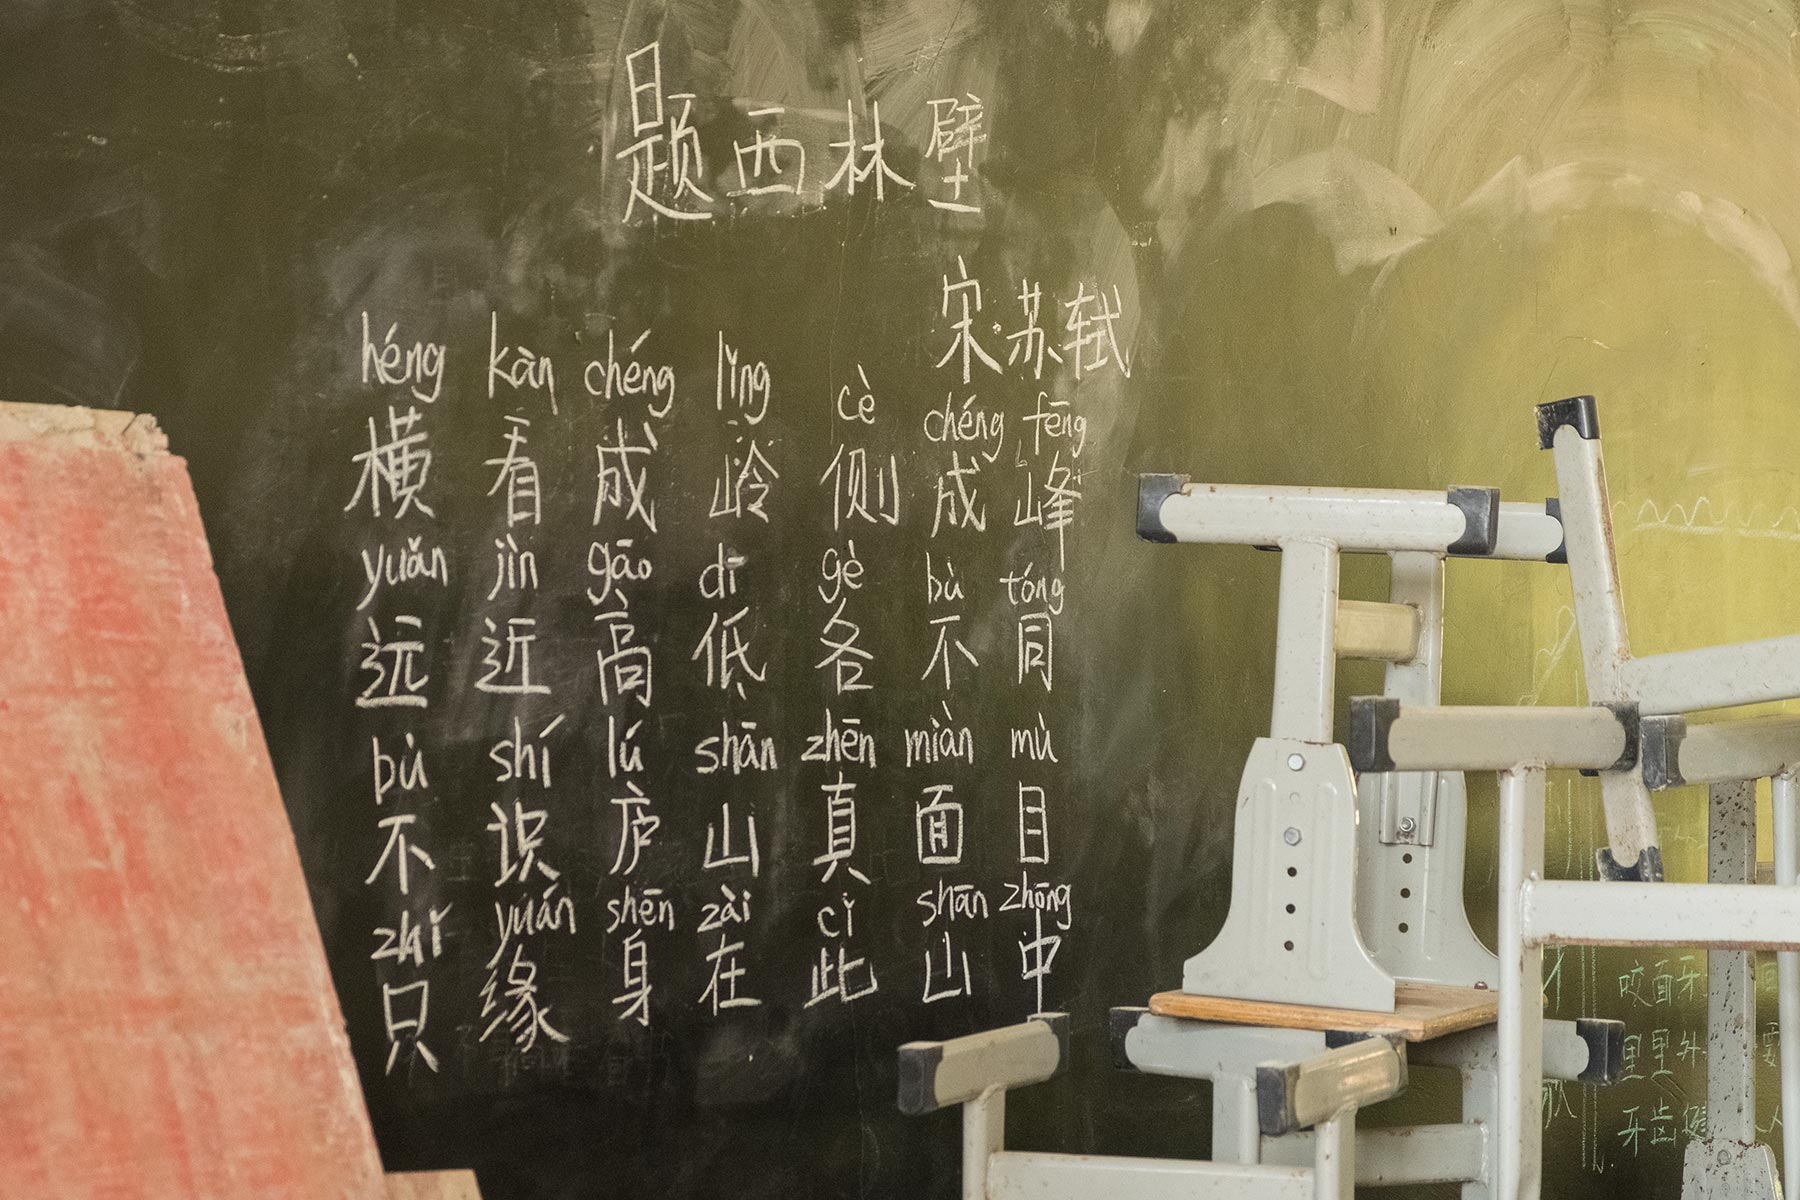 题西林壁
宋·苏轼
héng kàn chéng lǐng cè chéng fēng
横看成岭侧成峰
yuǎn jìn gāo dī gè bù tóng
远近高低各不同
bù shí lú shān zhēn miàn mù
不识庐山真面目
zhǐ yuán shēn zài cǐ shān zhōng
只缘身在此山中
咬面牙
里里外
牙齿